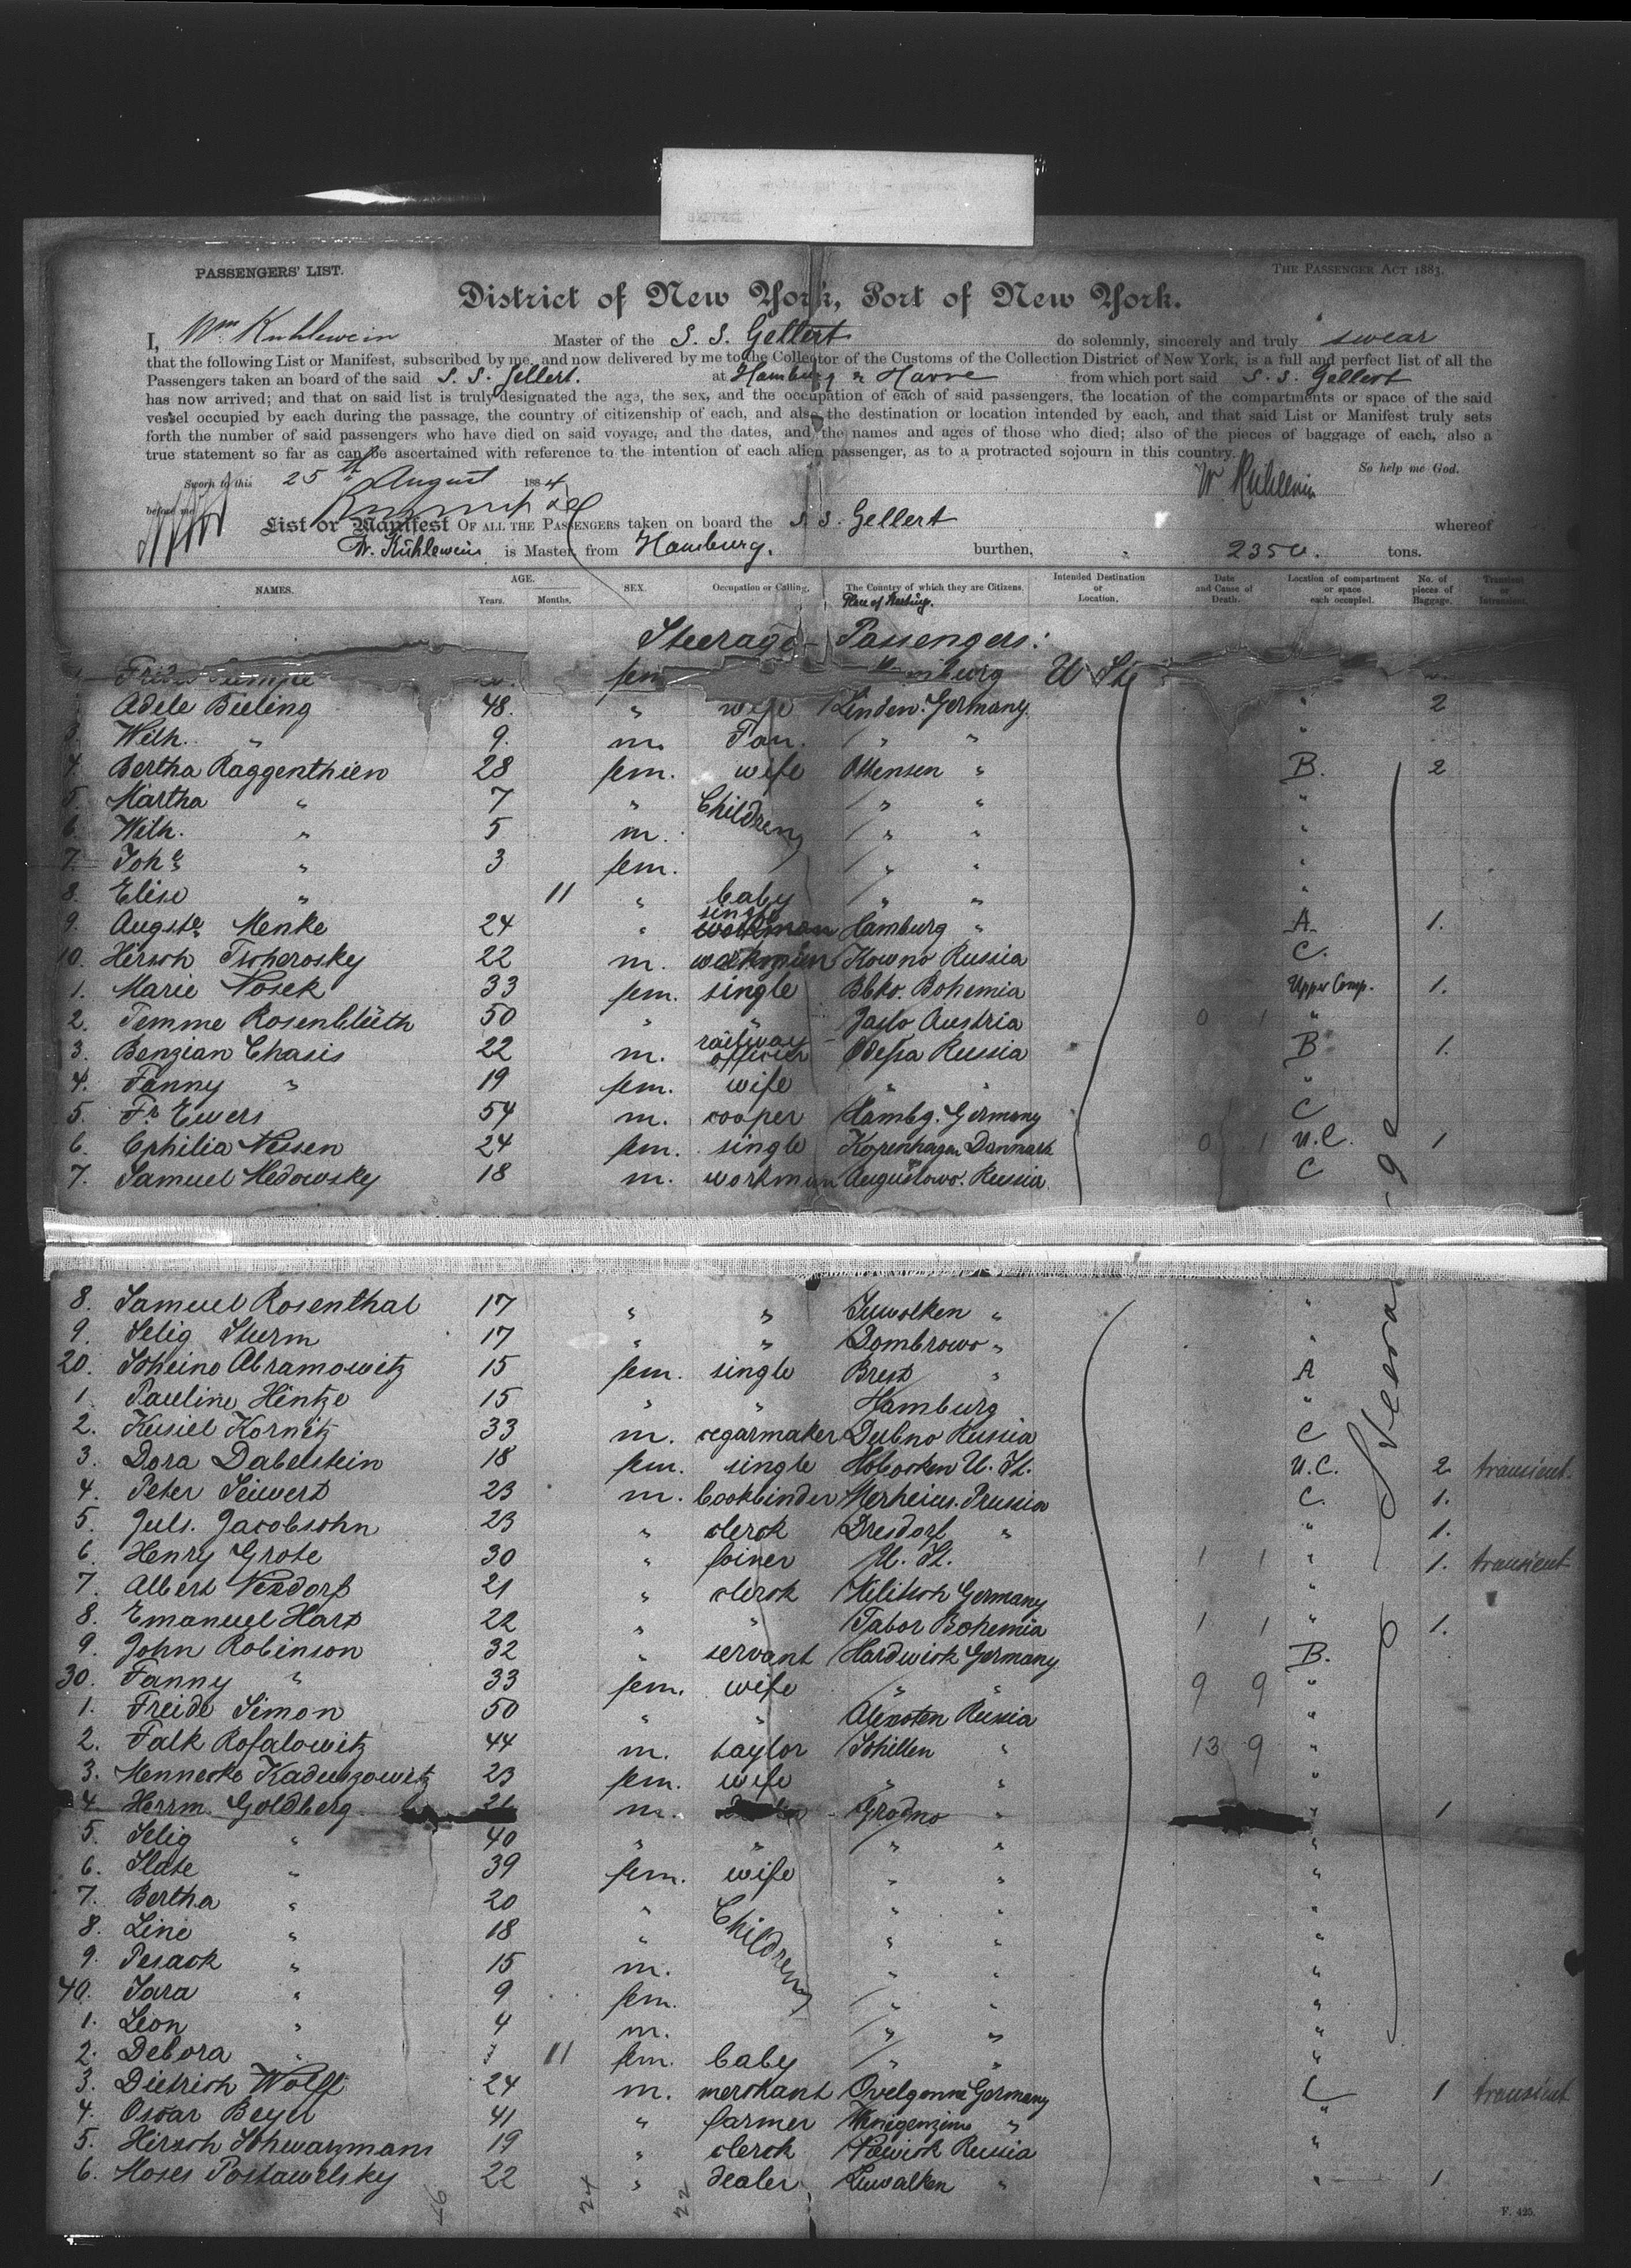 PASSENGERS' LIST.
THE PASSENGER ACT 1883.
District of New York, Port of New York.
I, Wm. Kuhlewein Master of the S. S. Gellert do solemnly, sincerely and truly swear
that the following List or Manifest, subscribed by me, and now delivered by me to the Collector of the Customs of the Collection District of New York, is a full and perfect list of all the
Passengers taken an board of the said S. S. Gellert. at Hamburg & Havre from which port said S. S. Gellert
has now arrived; and that on said list is truly designated the age, the sex, and the occupation of each of said passengers, the location of the compartments or space of the said
vessel occupied by each during the passage, the country of citizenship of each, and also the destination or location intended by each, and that said List or Manifest truly sets
forth the number of said passengers who have died on said voyage, and the dates, and the names and ages of those who died; also of the pieces of baggage of each, also a
true statement so far as can be ascertained with reference to the intention of each alien passenger, as to a protracted sojourn in this country.
So help me God.
Sworn to this 25th August 1884
W Kühlewein
before me
List or Manifest OF ALL THE PASSENGERS taken on board the S. S. Gellert whereof
W. Kühlewein is Master, from Hamburg. burthen, " tons.
NAMES. AGE. Years. Months. SEX. Occupation or Calling. The Country of which they are Citizens. Intended Destination or Location. Date and Cause of Death. Location of compartment or space each occupied. No. of pieces of Baggage. Transient or
Steerage Passengers:
fem U St
Adele Bieling 48. " wife Linden. Germany. " 2
3. Wilh. " 9. m. " " "
4. Bertha Raggenthien 28 fem. wife Ottensen " B. 2
5. Martha " 7 " Children " " "
6. Wilh. " 5 m. " " "
7. Johe " 3 fem. " " "
8. Elise " 11 " baby " " "
9. Auguste Menke 24 " single Hamburg " A 1.
10. Hirsch Tscherosky 22 m. workman Kowno Russia C.
1. Marie Nosek 33 fem. single Bbko. Bohemia Upper Comp. 1.
2. Temme Rosenblüth 50 " " Jaslo Austria 0 1 "
3. Benzian Chasis 22 m. railway officier Odessa Russia B 1.
4. Fanny " 19 fem. wife " " "
5. Fr. Ewers 54 m. cooper Hambg. Germany C
6. Ephilia Nissen 24 fem. single Kopenhagen Danmark 0 1 U.C. 1
7. Samuel Medowsky 18 m. workman Augustowo. Russia. C
8. Samuel Rosenthal 17 " " Suwolken " "
9. Selig Sturm 17 " " Dombrowo " "
20. Scheine Abramowitz 15 fem. single Brest " A
1. Pauline Hintze 15 " " Hamburg "
2. Kusiel Kornitz 33 m. cegarmaker Dubno Russia C
3. Dora Dabelstein 18 fem. single Hoboken U. St. U.C. 2 transient.
4. Peter Siewert 23 m. bookbinder Merheim. Prussia C. 1.
5. Juls. Jacobsohn 23 " clerck Dresdorf " " 1.
6. Henry Grote 30 " joiner U. St. 1 1 " 1. transient
7. Albert Nexdorf 21 " clerck Germany "
8. Emanuel Hart 22 " " Tabor Bohemia 1 1 " 1.
9. John Robinson 32 " servant Hardwick Germany B.
30. Fanny " 33 fem. wife " " 9 9 "
1. Freide Simon 50 " " Alexoten Russia "
2. Falk Rofalowitz 44 m. taylor Schillen " 13 9 "
3. Kaduszowitz 23 fem. wife " " "
4. Herrm. Goldberg 21 m. Grodno " " 1
5. Selig " 40 " " " " "
6. Slate " 39 fem. wife " " "
7. Bertha " 20 " Children " " "
8. Line " 18 " " " "
9. Pesack " 15 m. " " "
40. Sara " 9 fem. " " "
1. Leon " 4 m. " " "
2. Debora " 11 fem. baby " " "
3. Dietrich Wolff 24 m. merchant Ovelgonne Germany C 1 transient
4. Oscar Beyer 41 " farmer " "
5. Hirsch Schwarzmann 19 " clerck Russia "
6. Moses Postawelsky 22 " dealer Suwalken " " 1
Steerage
46 24 22
F. 425.